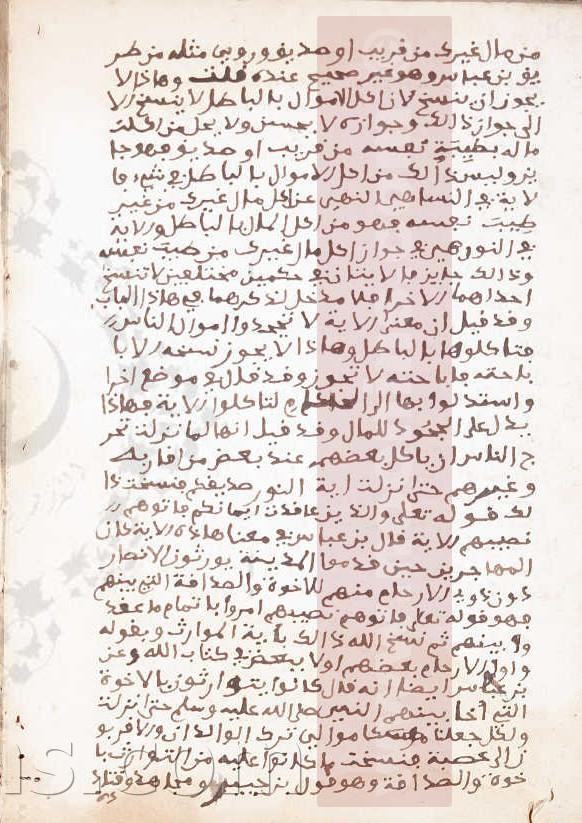 من مال غيرك من قريب او صديق وروي مثله من طر
يق بن عباس وهو غير صحيح عنه قلت وهاذا لا
يجوز ان ينسخ لان اكل الاموال بالباطل لا ينسخ الا
الى جواز ذالك وجوازه لا يحسن ولا يحل من اكلت
ماله بطيبة نفسه من قريب او صديق فهو جا
يز وليس ذالك من اكل الاموال بالباطل في شيء فا
لاية في النساء هي النهي عن اكل مال غيرك من غير
طيب نفسه فهو من اكل المال بالباطل والاية
في النور هي في جواز اكل مال غيرك من طيب نفسه
وذالك جايز فالايتان في حكمين مختلفين لا تنسخ
احداهما الاخرا فلا مدخل لذكرهما في هاذا الباب
وقد قيل ان معنى الاية لا تجحدوا اموال الناس
فتاكلوها بالباطل وهاذا لا يجوز نسخه الا با
باحته فاباحته لا تجوز وقد قال في موضع اخرا
وتدلوا بها الى الحكام لتاكلوا الاية فهاذا
يدل على الجحود للمال وقد قيل انها لما نزلت تحر
ج الناس ان ياكل بعضهم عند بعض من اقاربه
وغيرهم حتى انزلت اية النور صديقكم فنسخت ذا
لك قوله تعلى والذين عاقدت ايمانكم فاتوهم
نصيبهم الاية قال بن عباس في معنا هاذه الاية كان
المهاجرين حين قدموا المدينة يورثون الانصار
دون ذوي الارحام منهم للاخوة والصداقة التي بينهم
فهو قوله تعلى فاتوهم نصيبهم امروا باتمام ما عقد
وا بينهم ثم نسخ الله ذالك باية الموارث وبقوله
واولوا الارحام بعضهم اولا ببعض في كتاب الله وعن
بن عباس ايضا انه قال كانوا يتوارثون بالاخوة
التي آخا بينهم النبي صلى الله عليه وسلم حتى انزلت
ولكل جعلنا موالي مما ترك الوالدان والاقربو
ن الى عصبة فنسخت ما كانوا عليه من التوارث با
خوة والصداقة وهو قول بن جبير ومجاهد وقتاد